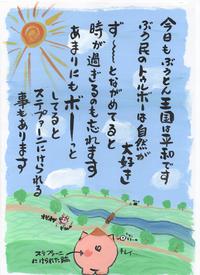 今日もぶうどん王国は平和です
ぶう民のトゥルボーは自然が
大好き
ず〜〜っとながめてると
時が過ぎるのも忘れます
あまりにもボーっと
してると
ステファーンにけられる
事もあります
ステファーン
にけられた跡
キレイ